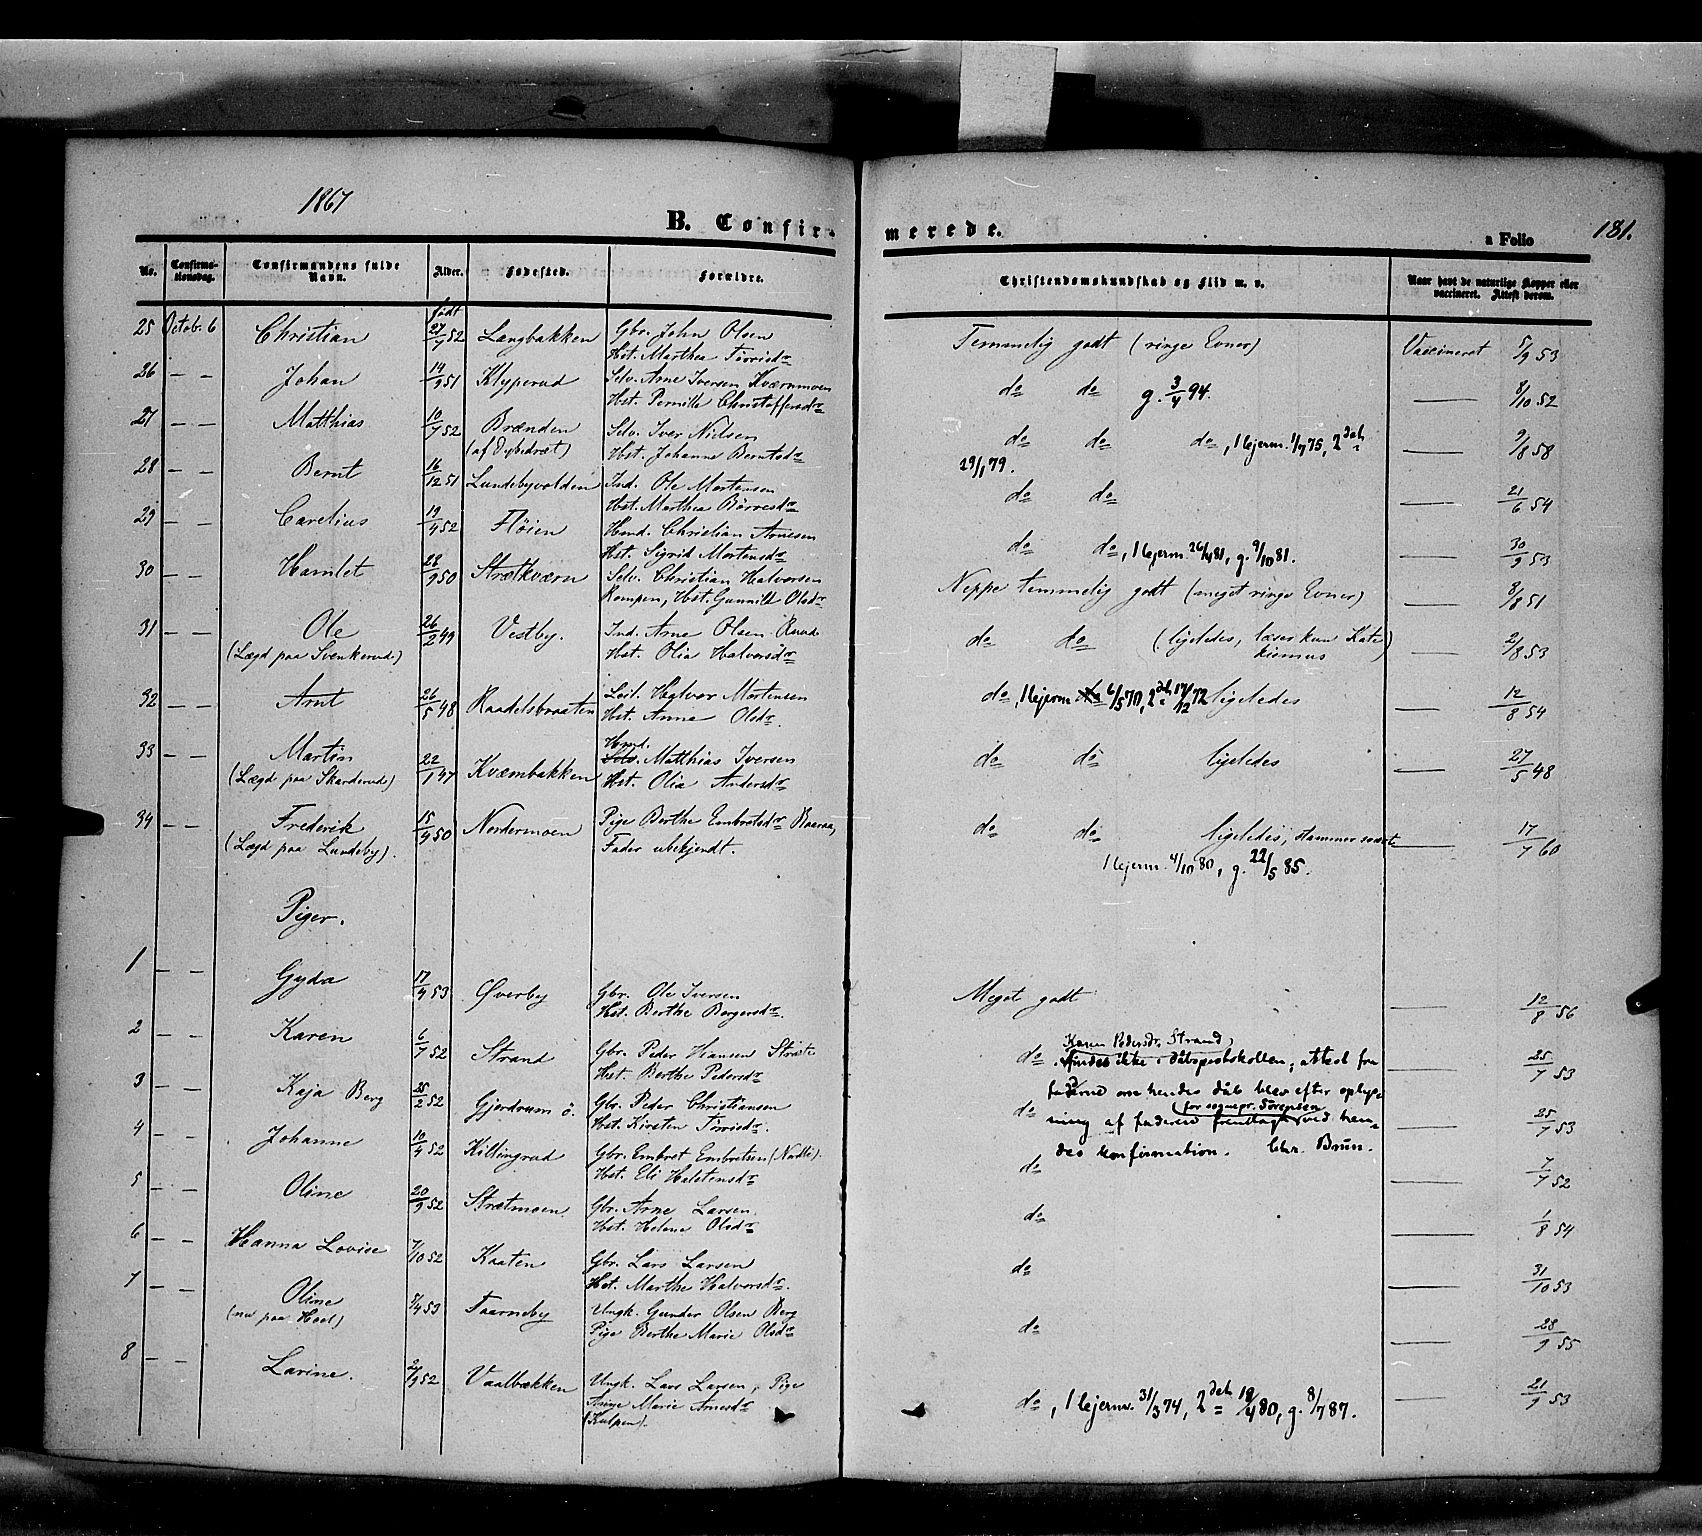 1867
B. Confirmerede.
a Folio 181.
No. Confirmationsdag. Confirmandens fulde Navn. Alder. Fødested. Forældre. Christendomskundskab og Flid m. v. Naar havt de naturlige Kopper eller vaccineret. Attest derom.
født
25 Octob. 6 Christian 27/7 52 Langbakken Gbr. John Olsen Temmelig godt (ringe Evner) Vaccineret 5/9 53
Hst. Marthea Torrisdr
26 — — Johan 14/9 51 Klyperud Selv. Arne Iversen Kværnmoen do do g. 3/4 94. — 8/10 52
Hst. Pernille Christoffersdr
27 — — Matthias 10/7 52 Brænden Selv. Iver Nielsen do do do, 1 lejerm. 1/7 75, 2 det — 9/8 58
(af Dybedræt) Hst. Johanne Berntsdr 29/1 79.
28 — — Bernt 16/12 51 Lundebyvolden Ind. Ole Mortensen do do — 21/6 54
Hst. Marthea Børresdr
29 — — Carelius 19/4 52 Fløien Hmd. Christian Arnesen do do, 1 lejerm. 26/4 81, g. 9/10 81. — 30/9 53
Hst. Sigrid Mortensdr
30 — — Hamlet 28/9 50 Strætkværn Selv. Christian Halvorsen Neppe temmelig godt (meget ringe Evner) — 8/8 51
Kampen, Hst. Gunnild Olsdr
31 — — Ole 26/2 49 Vestby. Ind. Arne Olsen Ruud do do (ligeledes, læser kun Kate- — 2/8 53
(Lægd paa Svenkerud) Hst. Olia Halvorsdr kismus)
32 — — Arnt 26/5 48 Raadelsbraaten Leil. Halvor Mortensen do, 1 lejerm. 6/5 70, 2 det 17/12 72 ligeledes — 12/8 54
Hst. Anne Olsdr.
Hmd.
33 — — Martin 22/1 47 Kvæmbakken Selv. Matthias Iversen do do ligeledes — 27/5 48
(Lægd paa Skarderud) Hst. Olia Andersdr
34 — — Frederik 15/9 50 Nordermoen Pige Berthe Embretsdr Raaraa, do do ligeledes, stammer svært — 17/7 60
(Lægd paa Lundeby). Fader ubekjendt. 1 lejerm. 4/10 80, g. 22/5 85.
Piger.
1 — — Gyda 17/4 53 Øverby Gbr. Ole Iversen Meget godt — 12/8 56
Hst. Berthe Børgersdr.
2 — — Karen 6/7 52 Strand Gbr. Peder Hansen Stræte do — 25/7 53
Hst. Berthe Pedersdr
Karen Pedersdr. Strand,
findes ikke i dåbsprotokollen; attest fra
fadrene om hendes dåb blev efter oplys-
(for sognepr. Sørensen)
ning af faderen fremlagt ved hen-
des konfirmation. Chr. Brun.
3 — — Kaja Berg 25/2 52 Gjerdrum ö. Gbr. Peder Christiansen do — 25/7 53
Hst. Kirsten Torrisdr.
4 — — Johanne 10/4 52 Killingrud Gbr. Embret Embretsen (Nordli). do — 7/7 52
Hst. Eli Halstensdr
5 — — Oline 20/9 52 Strætmoen Gbr. Arne Larsen do — 1/8 54
Hst. Helene Olsdr
6 — — Hanna Lovise 7/10 52 Kaaten Gbr. Lars Larsen do — 31/10 53
Hst. Marthe Halvorsdr.
7 — — Oline 5/4 53 Taarneby Ungk. Gunder Olsen Berg do — 28/9 55
(nu paa Hoel) Pige Berthe Marie Olsdr
8 — — Larine. 2/9 52 Vaalbækken Ungk. Lars Larsen, Pige do, 1 lejerm. 31/3 74, 2 det 18/4 80, g. 8/7 87. — 21/9 53
Anne Marie Arnesdr
(Kulpen).